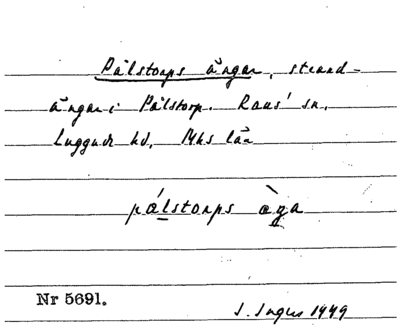 Pålstorps ängar, strand-
ängar i Pålstorp. Raus' sn,
Luggude hd, Mhs län
pálstorps ǫ̀ga
Nr 5691.
S. Ingers 1949